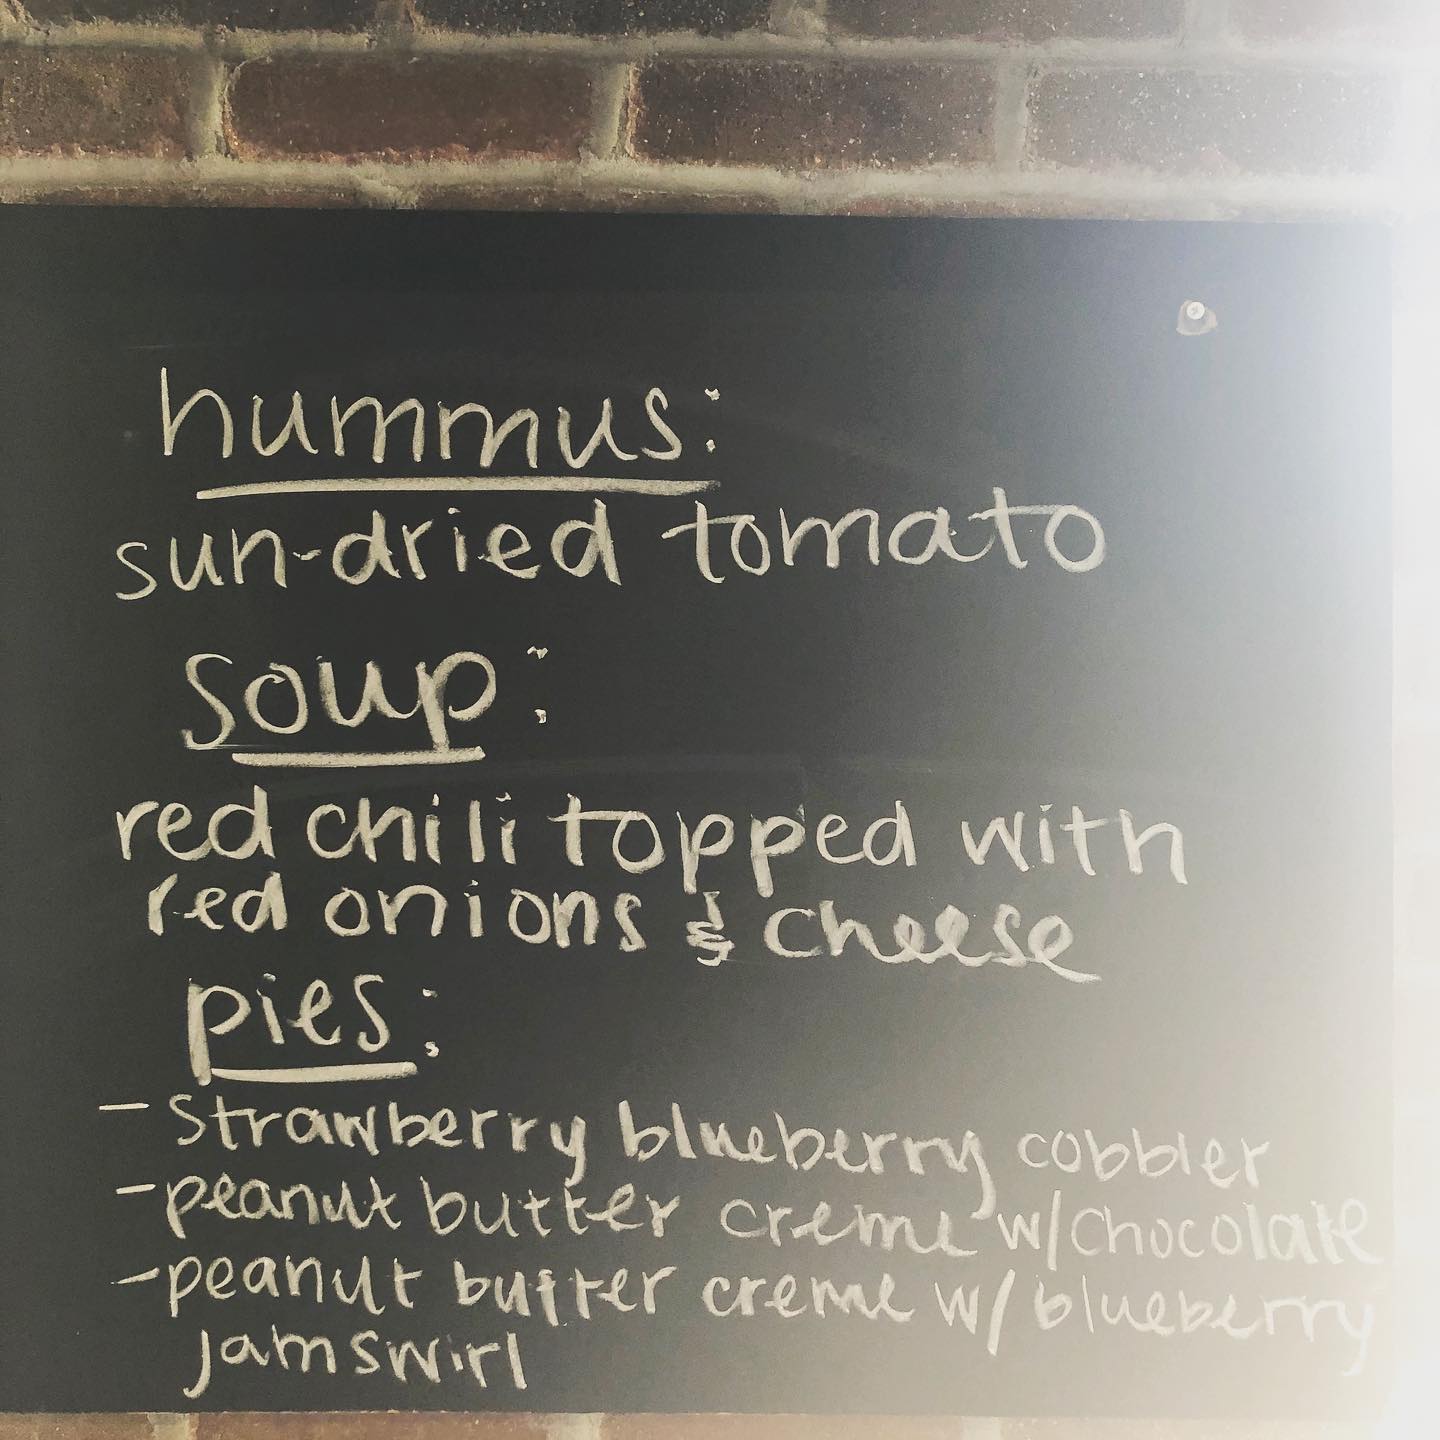 hummus:
sun-dried tomato
soup:
red chili topped with
red onions & cheese
pies:
- strawberry blueberry cobbler
- peanut butter creme w/chocolate
- peanut butter creme w/ blueberry
jam swirl